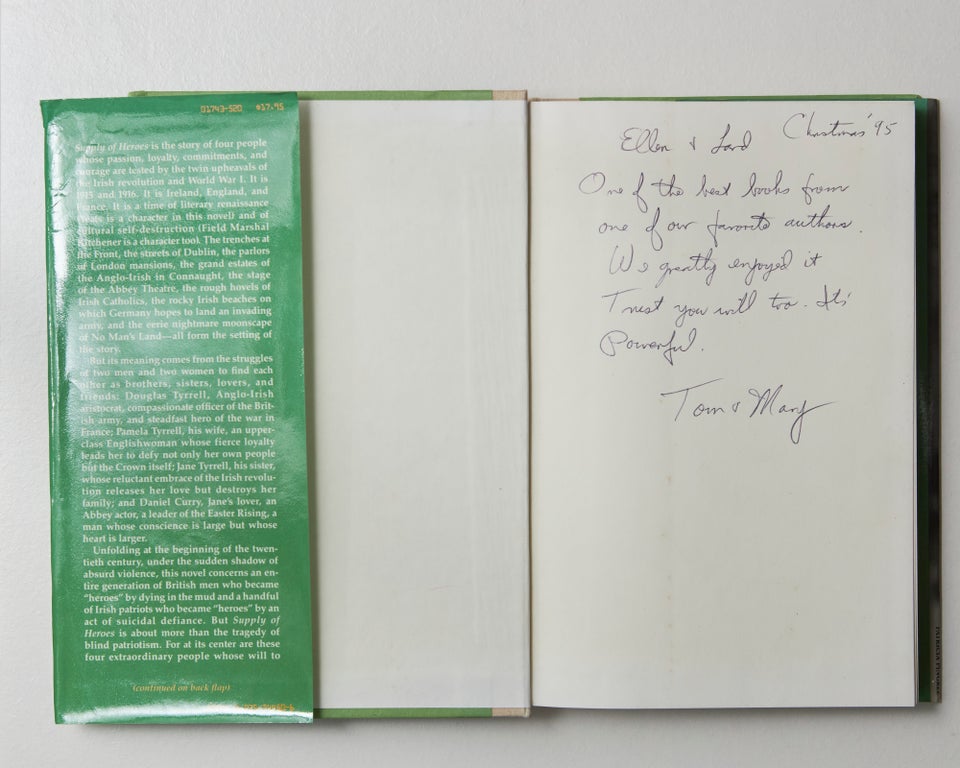 01743-$20 $17.95
Supply of Heroes is the story of four people
whose passion, loyalty, commitments, and
courage are tested by the twin upheavals of
the Irish revolution and World War I. It is
1915 and 1916. It is Ireland, England, and
France. It is a time of literary renaissance
(Yeats is a character in this novel) and of
cultural self-destruction (Field Marshal
Kitchener is a character too). The trenches at
the Front, the streets of Dublin, the parlors
of London mansions, the grand estates of
the Anglo-Irish in Connaught, the stage
of the Abbey Theatre, the rough hovels of
Irish Catholics, the rocky Irish beaches on
which Germany hopes to land an invading
army, and the eerie nightmare moonscape
of No Man's Land—all form the setting of
the story.
But its meaning comes from the struggles
of two men and two women to find each
other as brothers, sisters, lovers, and
friends: Douglas Tyrrell, Anglo-Irish
aristocrat, compassionate officer of the Brit-
ish army, and steadfast hero of the war in
France; Pamela Tyrrell, his wife, an upper-
class Englishwoman whose fierce loyalty
leads her to defy not only her own people
but the Crown itself; Jane Tyrrell, his sister,
whose reluctant embrace of the Irish revolu-
tion releases her love but destroys her
family; and Daniel Curry, Jane's lover, an
Abbey actor, a leader of the Easter Rising, a
man whose conscience is large but whose
heart is larger.
Unfolding at the beginning of the twen-
tieth century, under the sudden shadow of
absurd violence, this novel concerns an en-
tire generation of British men who became
"heroes" by dying in the mud and a handful
of Irish patriots who became "heroes" by an
act of suicidal defiance. But Supply of
Heroes is about more than the tragedy of
blind patriotism. For at its center are these
four extraordinary people whose will to
(continued on back flap)
Christmas '95
Ellen &
One of the best books from
one of our favorite authors.
We greatly enjoyed it
Trust you will too. It's
Powerful.
Tom & Mary